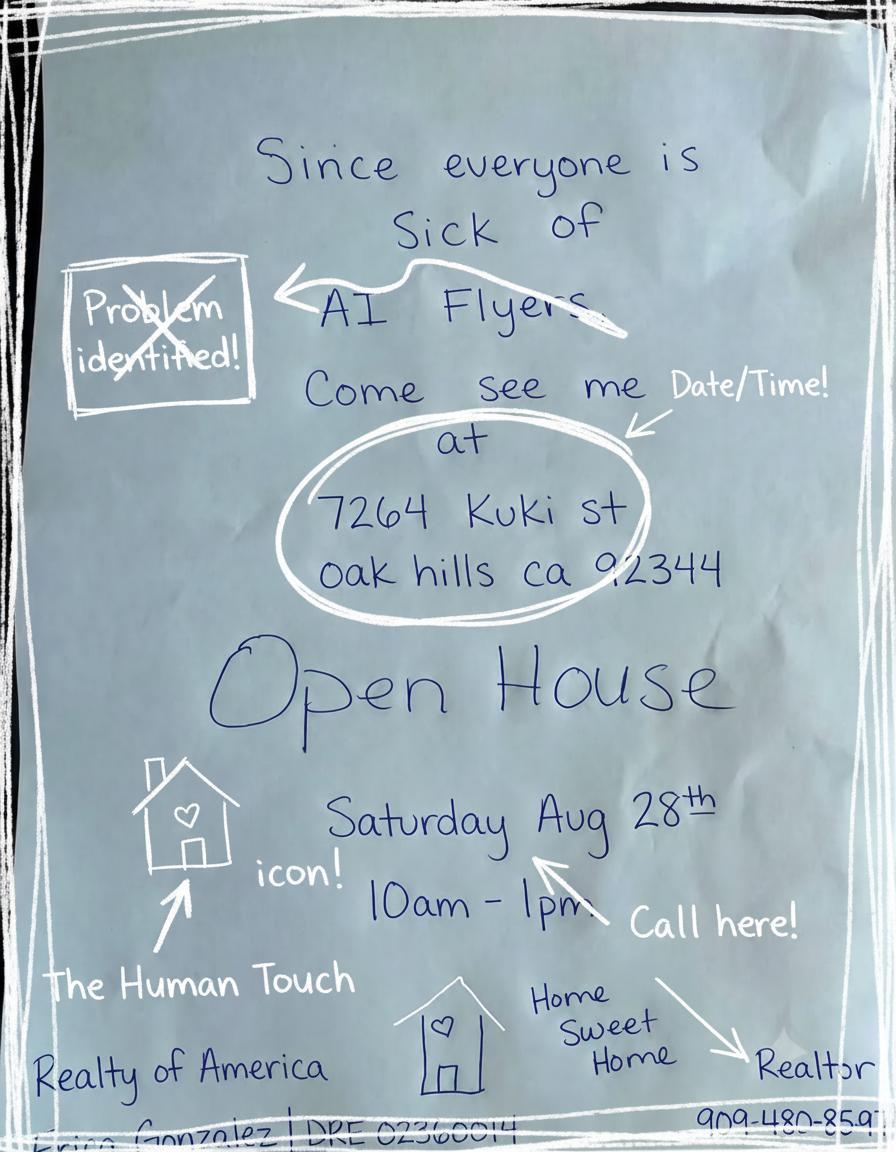 Since everyone is
Sick of
AI Flyers.
Problem
identified!
Come see me
Date/Time!
at
7264 Kuki st
oak hills ca 92344
Open House
Saturday Aug 28th
icon!
10am - 1pm
Call here!
The Human Touch
Home
Sweet
Home
Realty of America
Realtor
909-480-8597
Erica Gonzalez | DRE 02360014